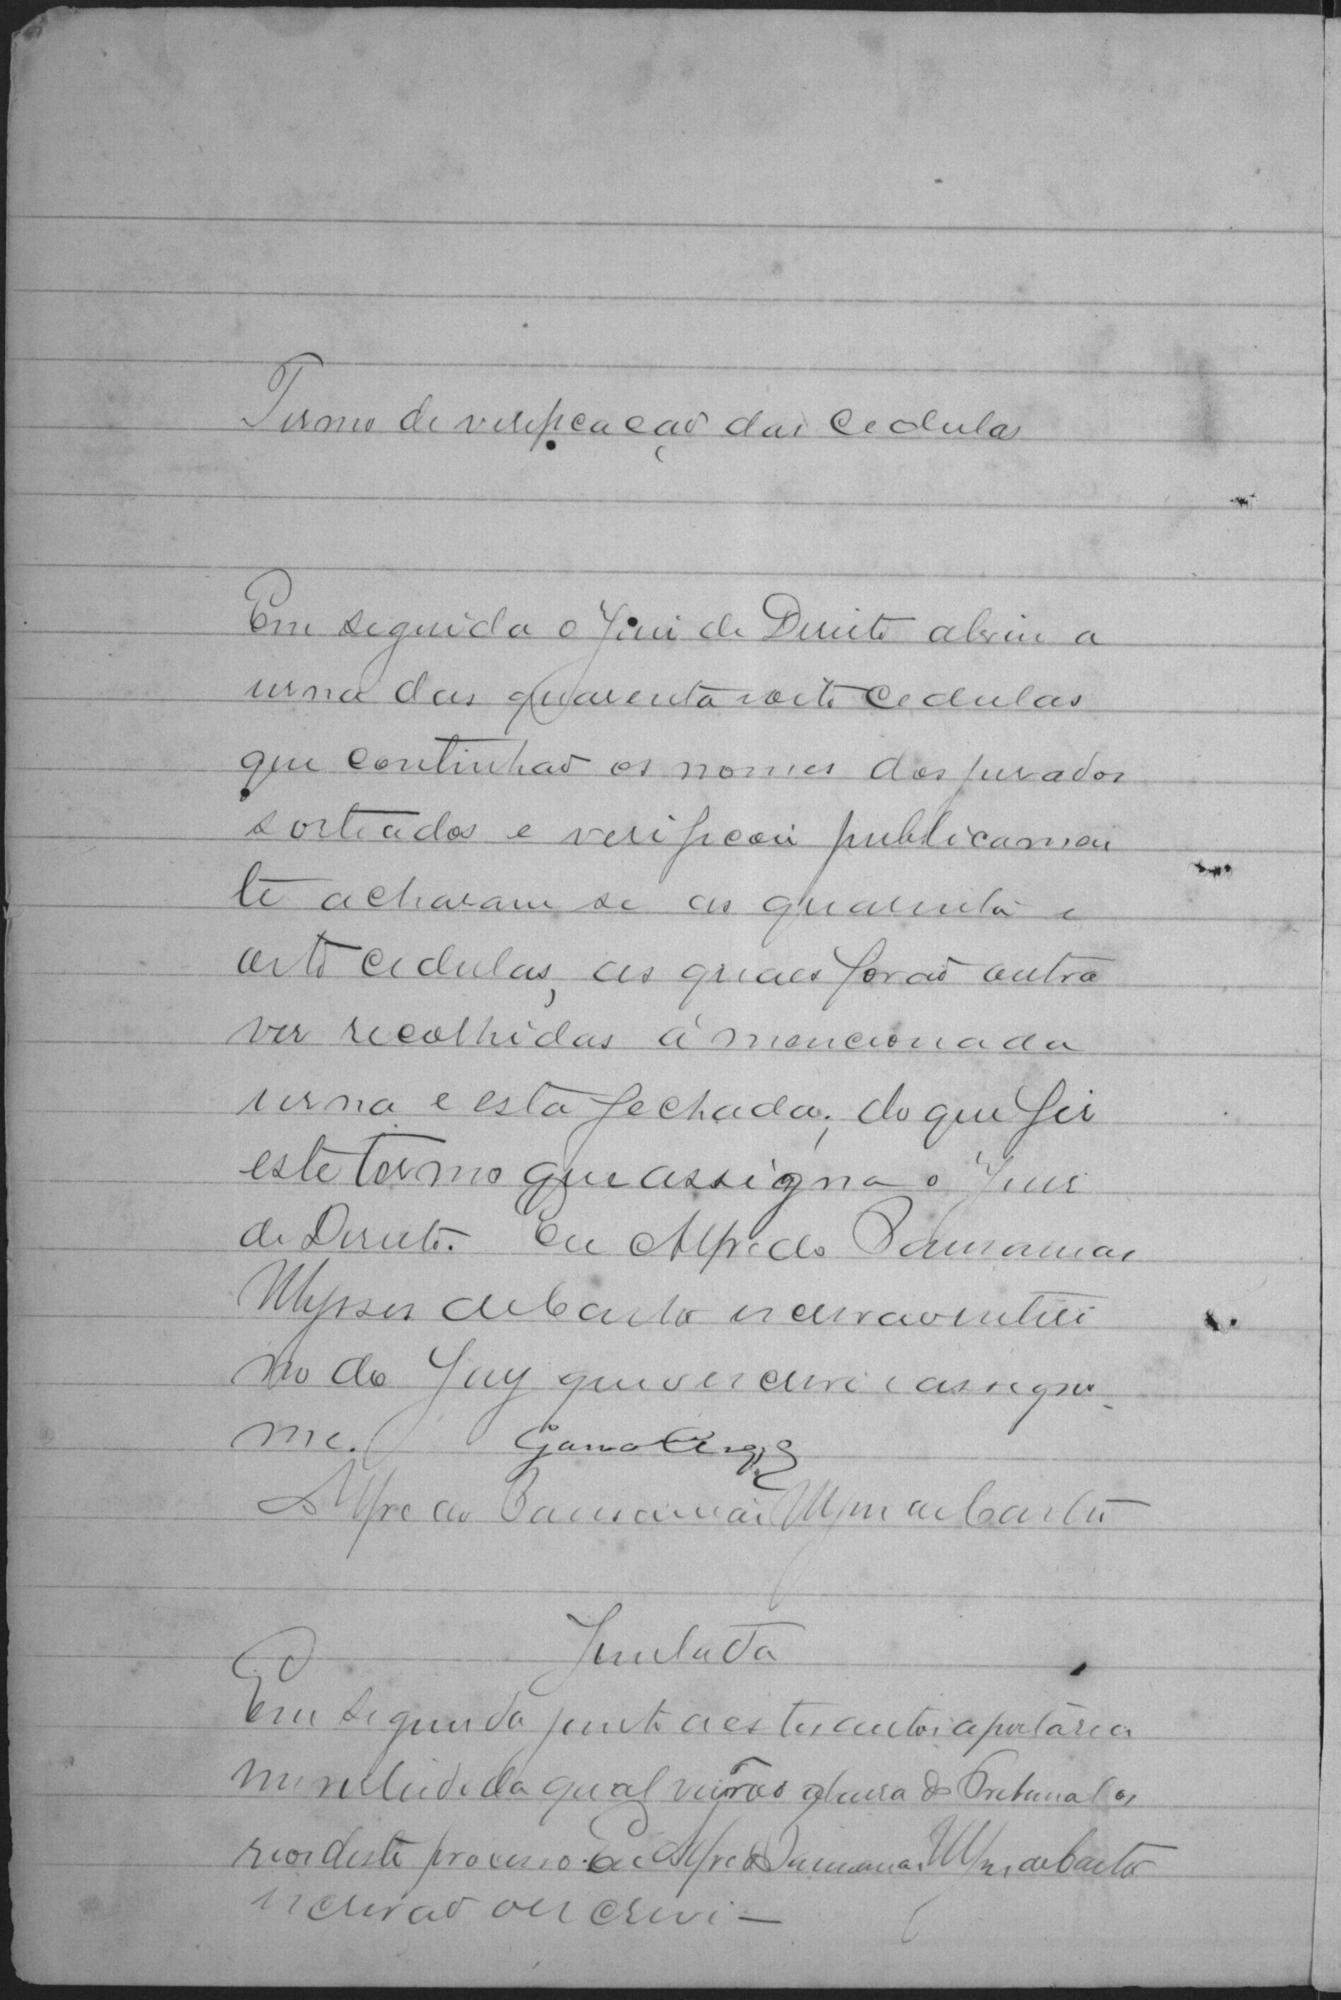 Termo de verificação das cedulas
Em seguida o Juiz de Direito abriu a
urna das quarenta e oito cedulas
que continhaõ os nomes dos jurados
sorteados e verificou publicamen
te acharam se as quarenta e
oito cedulas, as quaes foraõ outra
vez recolhidas á mencionada
urna e esta fechada; do que fiz
este termo que assigna o Juiz
de Direito. Eu Alfredo Pausanias
Ulysses de Castro escrivaõ interi
no do Jury que o escrevi e assigno
me.
Alfredo Pausanias Ulysses de Castro
Juntada
Em seguida junto a estes autos a portaria
em virtude da qual vieraõ á barra do Tribunal os
reos deste processo. Eu Alfredo Pausanias Ulysses de Castro
escrivaõ o escrevi —